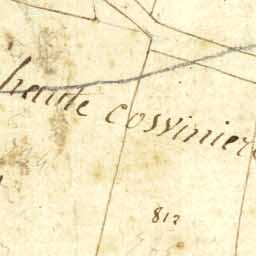 haute cossiniere
812